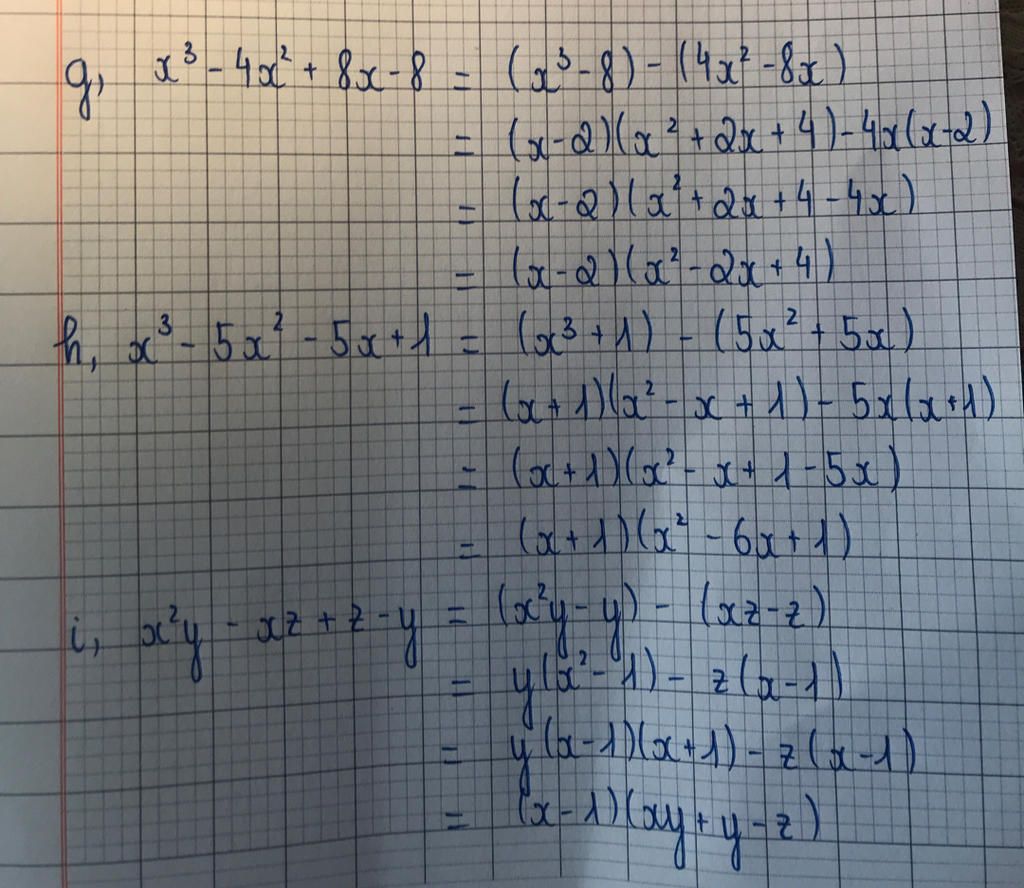 g, x³ - 4x² + 8x - 8 = (x³ - 8) - (4x² - 8x)
= (x - 2)(x² + 2x + 4) - 4x(x - 2)
= (x - 2)(x² + 2x + 4 - 4x)
= (x - 2)(x² - 2x + 4)
h, x³ - 5x² - 5x + 1 = (x³ + 1) - (5x² + 5x)
= (x + 1)(x² - x + 1) - 5x(x + 1)
= (x + 1)(x² - x + 1 - 5x)
= (x + 1)(x² - 6x + 1)
i, x²y - xz + z - y = (x²y - y) - (xz - z)
= y(x² - 1) - z(x - 1)
= y(x - 1)(x + 1) - z(x - 1)
= (x - 1)(xy + y - z)